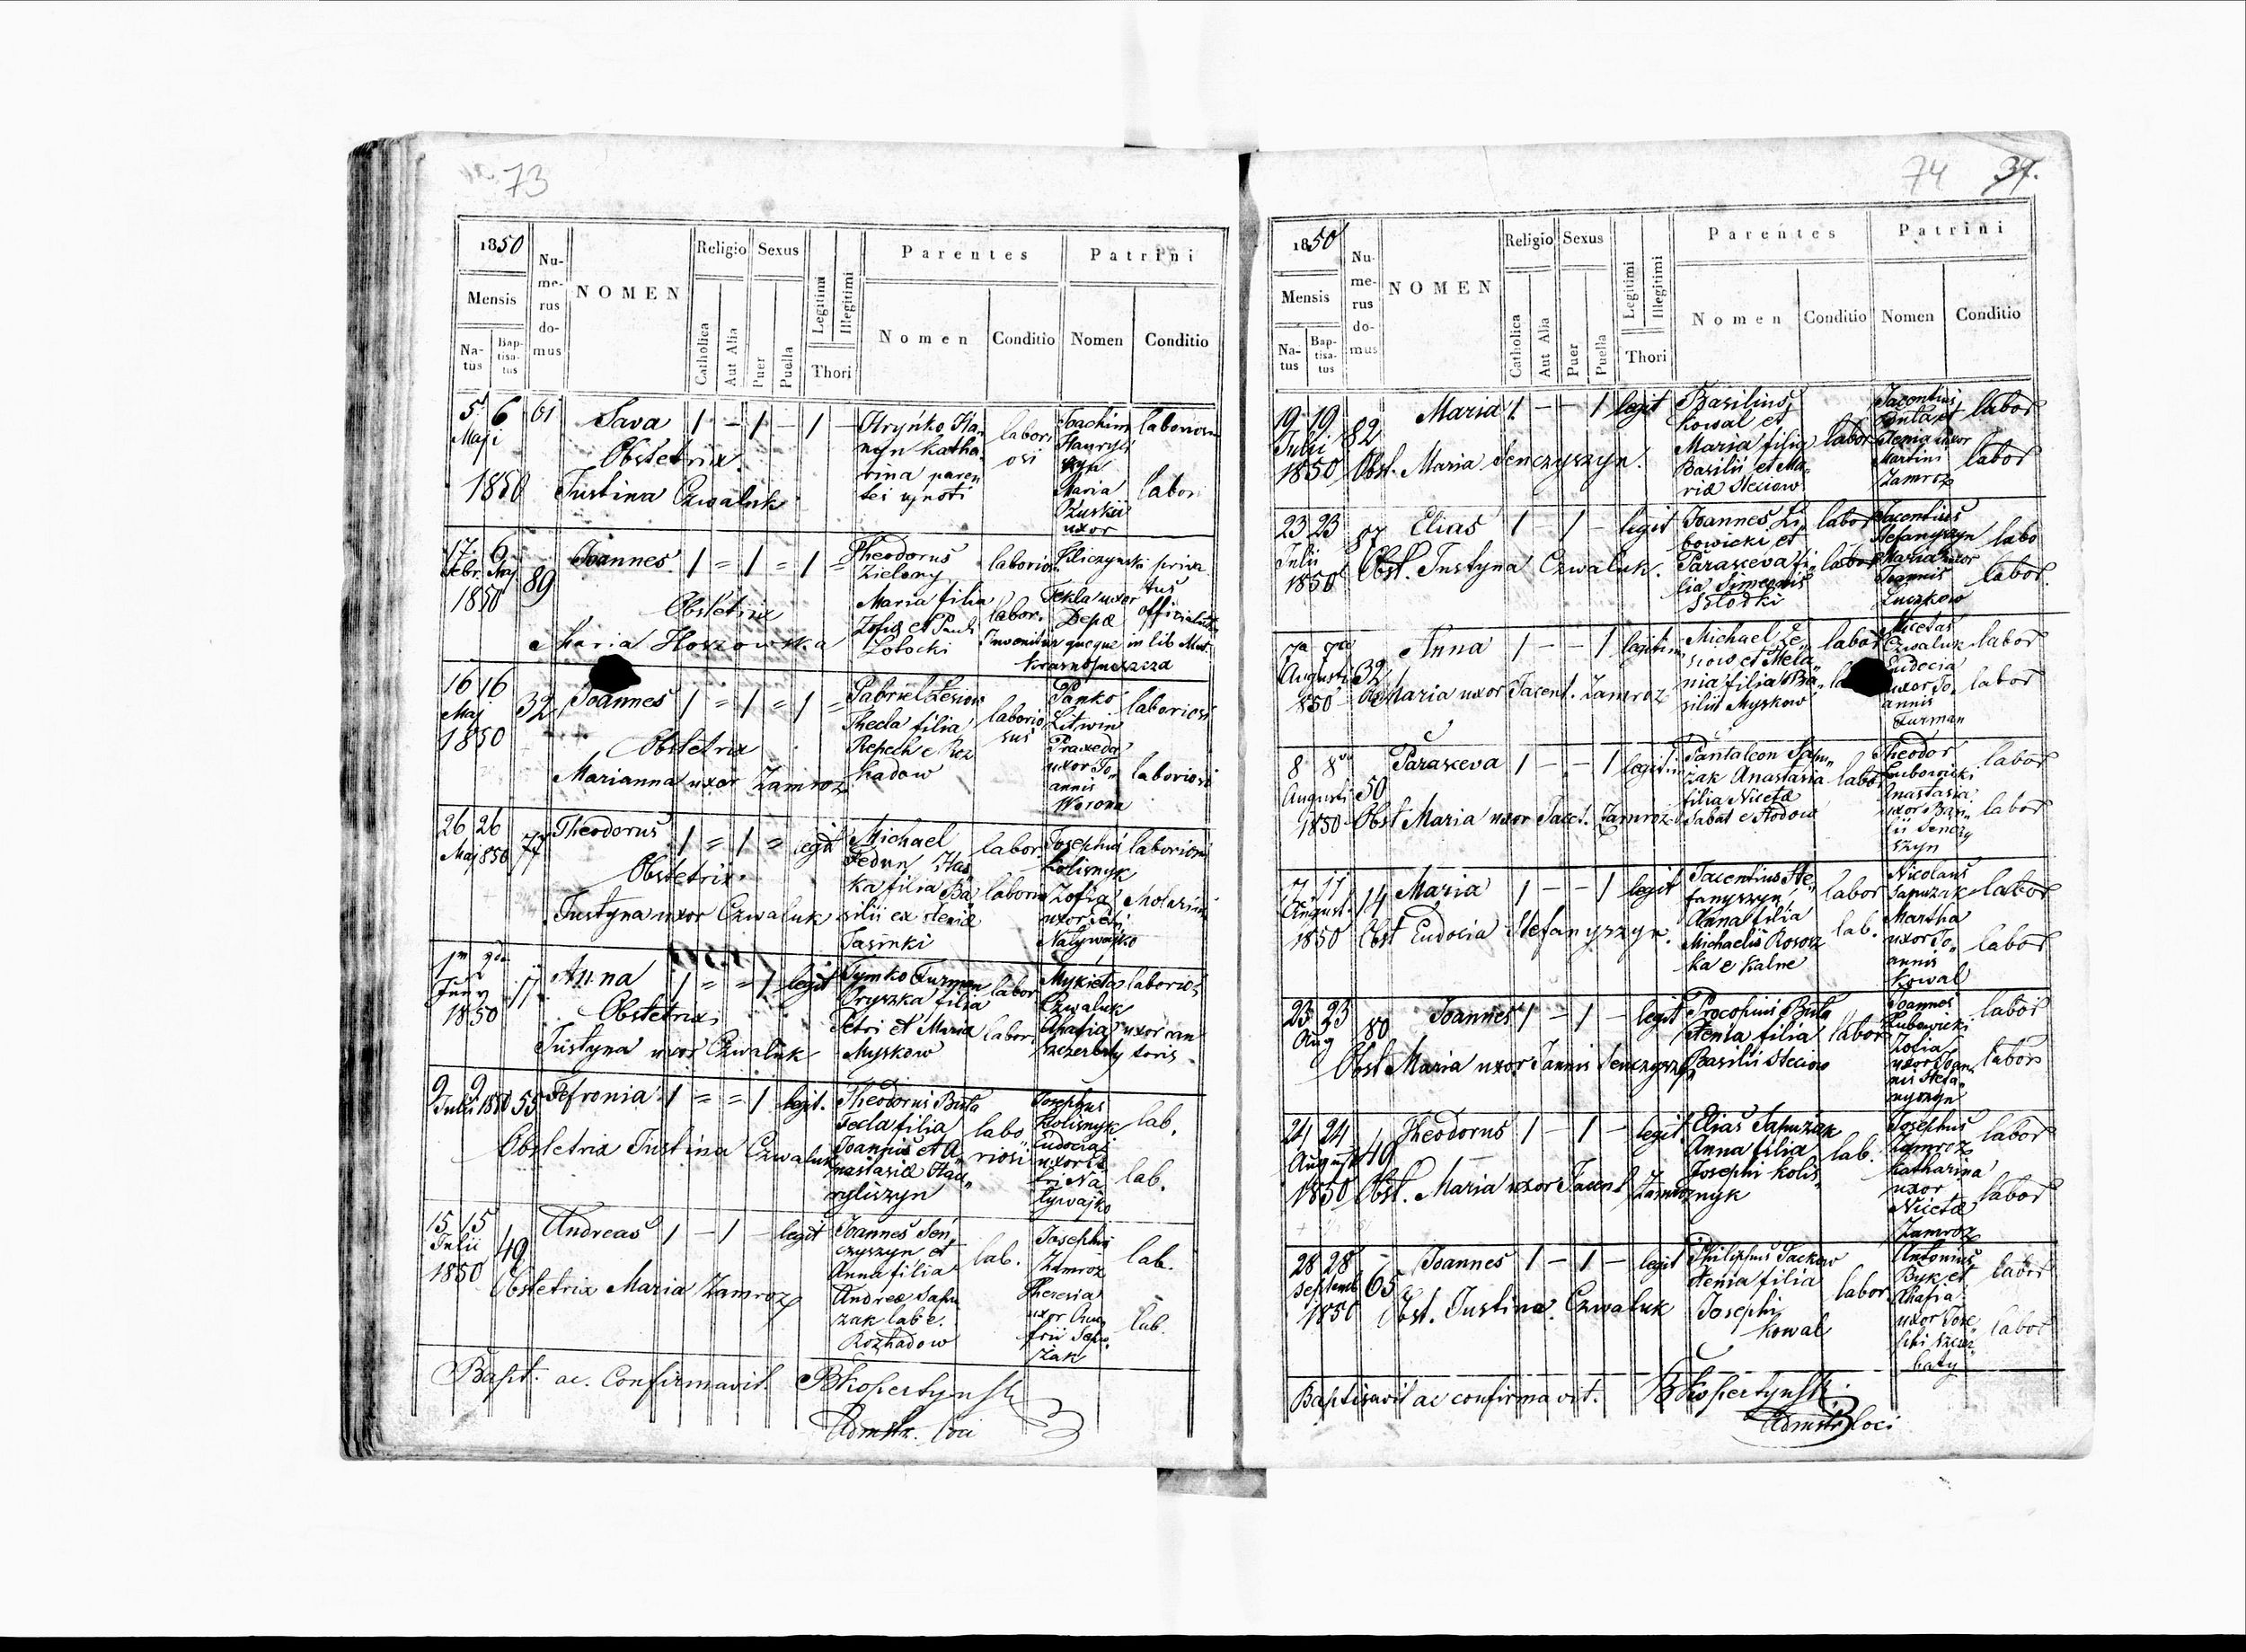 73
1850
Mensis
Na-
tus
Bap-
tisa-
tus
Nu-
me-
rus
do-
mus
NOMEN
Religio
Catholica
Aut Alia
Sexus
Puer
Puella
Legitimi
Illegitimi
Thori
Parentes
Nomen
Conditio
Patrini
Nomen
Conditio
5 6
Maji
1850
61
Sava
Obstetrix
Justina Czwaluk
1 - 1 - 1 -
Hryńko Ha
nyn Katha
rina paren
labori
osi
Joachim
Hauryli
szyn
Maria
uxor
laboriosi
labori
17 6
Febr. Maj
1850
89
Joannes
Obstetrix
Maria Hoszowska
1 = 1 = 1 =
Theodorus
Zielony
Maria filia
Zofiæ et Pauli
Zolocki
laborios.
labor.
Kliczynski
Tekla uxor
Depa
priva
tus
officialista
Invenitur quoque in lib. Mat.
16 16
Maj
1850
32
Joannes
Obstetrix
Marianna uxor Zamroz
1 = 1 = 1 =
Gabriel Lesiow
Thecla filia
Repech e Roz
hadow
laborio
sus
Panko
Litwin
Praxeda
uxor Jo„
annis
Worona
laboriosi
laboriosi
26 26
Maj 850
77
Theodorus
Obstetrix
Justyna uxor Czwaluk
1 = 1 = legit
Michael
Fedun Has
ka filia Ba
silii et Xenia
Jasinki
labor.
laborio
Josephus
Kolisnyk
Zofia
uxor
Nalywajko
laboriosi
1m 2da
Juny
1850
11
Anna
Obstetrix
Justyna uxor Czwaluk
1 = = 1 legit
Tymko Furman
Oryszka filia
Petri et Maria
Myskow
labor
labor.
Mykieta
Czwaluk
Ahafia uxor can
Szczerbaty toris
laborios
9 9
Julii 1850
55
Fefronia
Obstetrix Justina Czwaluk
1 = = 1 legit.
Theodorus Buta
Tecla filia
Joannis et A„
nastasiæ Hau„
ryliszyn
labo
riosi
Josephus
Kolisnyk
Eudocia
uxor Pe
tri Na
lywajko
lab.
lab.
15 15
Julii
1850
49
Andreas
Obstetrix Maria Zamroz
1 - 1 - legit
Joannes Sen„
czyszyn et
Anna filia
Andreæ Sapu
zak lab e.
Rozhadow
lab.
Josephus
Zamroz
Theresia
uxor Onu
frii Sapu
zak
lab.
lab.
Bapt. ac. Confirmavit. BKopertynski
Admstr. loci
74 37.
1850
Mensis
Na-
tus
Bap-
tisa-
tus
Nu-
me-
rus
do-
mus
NOMEN
Religio
Catholica
Aut Alia
Sexus
Puer
Puella
Legitimi
Illegitimi
Thori
Parentes
Nomen
Conditio
Patrini
Nomen
Conditio
19 19
Julii
1850
82
Maria
Obst. Maria Senczyszyn.
1 - - 1 legit
Basilius
Kowal et
Maria filia
Basilii et Ma-
riæ Steciow
labor
Jacentius
Buta et
Xenia uxor
Martini
Zamroz
labor
labor
23 23
Julii
1850
87
Elias
Obst. Justyna Czwaluk.
1 - 1 - legit
Joannes Lu
bowicki et
Parasceva fi„
lia Simeonis
Szlodki
labor
labor
Jacentius
Stefanyszyn
Maria uxor
Joannis
Luczkow
labo
labor.
7a 7a
Augusti
850
32
Anna
Obs Maria uxor Jacent. Zamroz
1 - - 1 legitim
Michael Le„
siow et Mela„
nia filia Ba„
silii Myskow
labor
Nicetas
Czwaluk
Eudocia
uxor Jo„
annis
Furman
labor
labor
8 8
Augusti
1850
50
Parasceva
Obst Maria uxor Jacet. Zamroz
1 - - 1 legitim
Pantaleon Sapu„
zak Anastasia
filia Nicetæ
Sabat e Hodow
labor
Theodor
Lubowicki
Anastasia
uxor Basi„
lii Senczy
szyn
labor
labor
17 17
August.
1850
14
Maria
Obst Eudocia Stefanyszyn.
1 - - 1 legit
Jacentius Ste„
fanyszyn,
Anna filia
Michaelis Kososz
ka e Kalne
labor
lab.
Nicolaus
Sapuzak
Martha
uxor Jo„
annis
Kowal
labor
labor
23 23
Aug
80
Joannes
Obst Maria uxor Joannis Senczyszyn
1 - 1 - legit
Procopius Buta
Xenia filia
Basilii Steciow
labor
Joannes
Lubowicki
Zofia
uxor Joan„
nis Stefa„
nyszyn
labor
labor
24 24
August
1850
49
Theodorus
Obst. Maria uxor Jacent Zamroz
1 - 1 - legit.
Elias Sapuzak
Anna filia
Josephi Kolis„
nyk
lab.
Josephus
Zamroz
Katharina
uxor
Nicetæ
Zamroz
labor
labor
28 28
Septemb
1850
65
Joannes
Obst. Justina Czwaluk
1 - 1 - legit
Philippus Jackow
Xenia filia
Josephi
Kowal
labor
Antonius
Byk et
Ahafia
uxor Jose„
phi Szczer„
baty
labor
labor
Baptisavit ac confirmavit. BKopertynski
Admstr loci